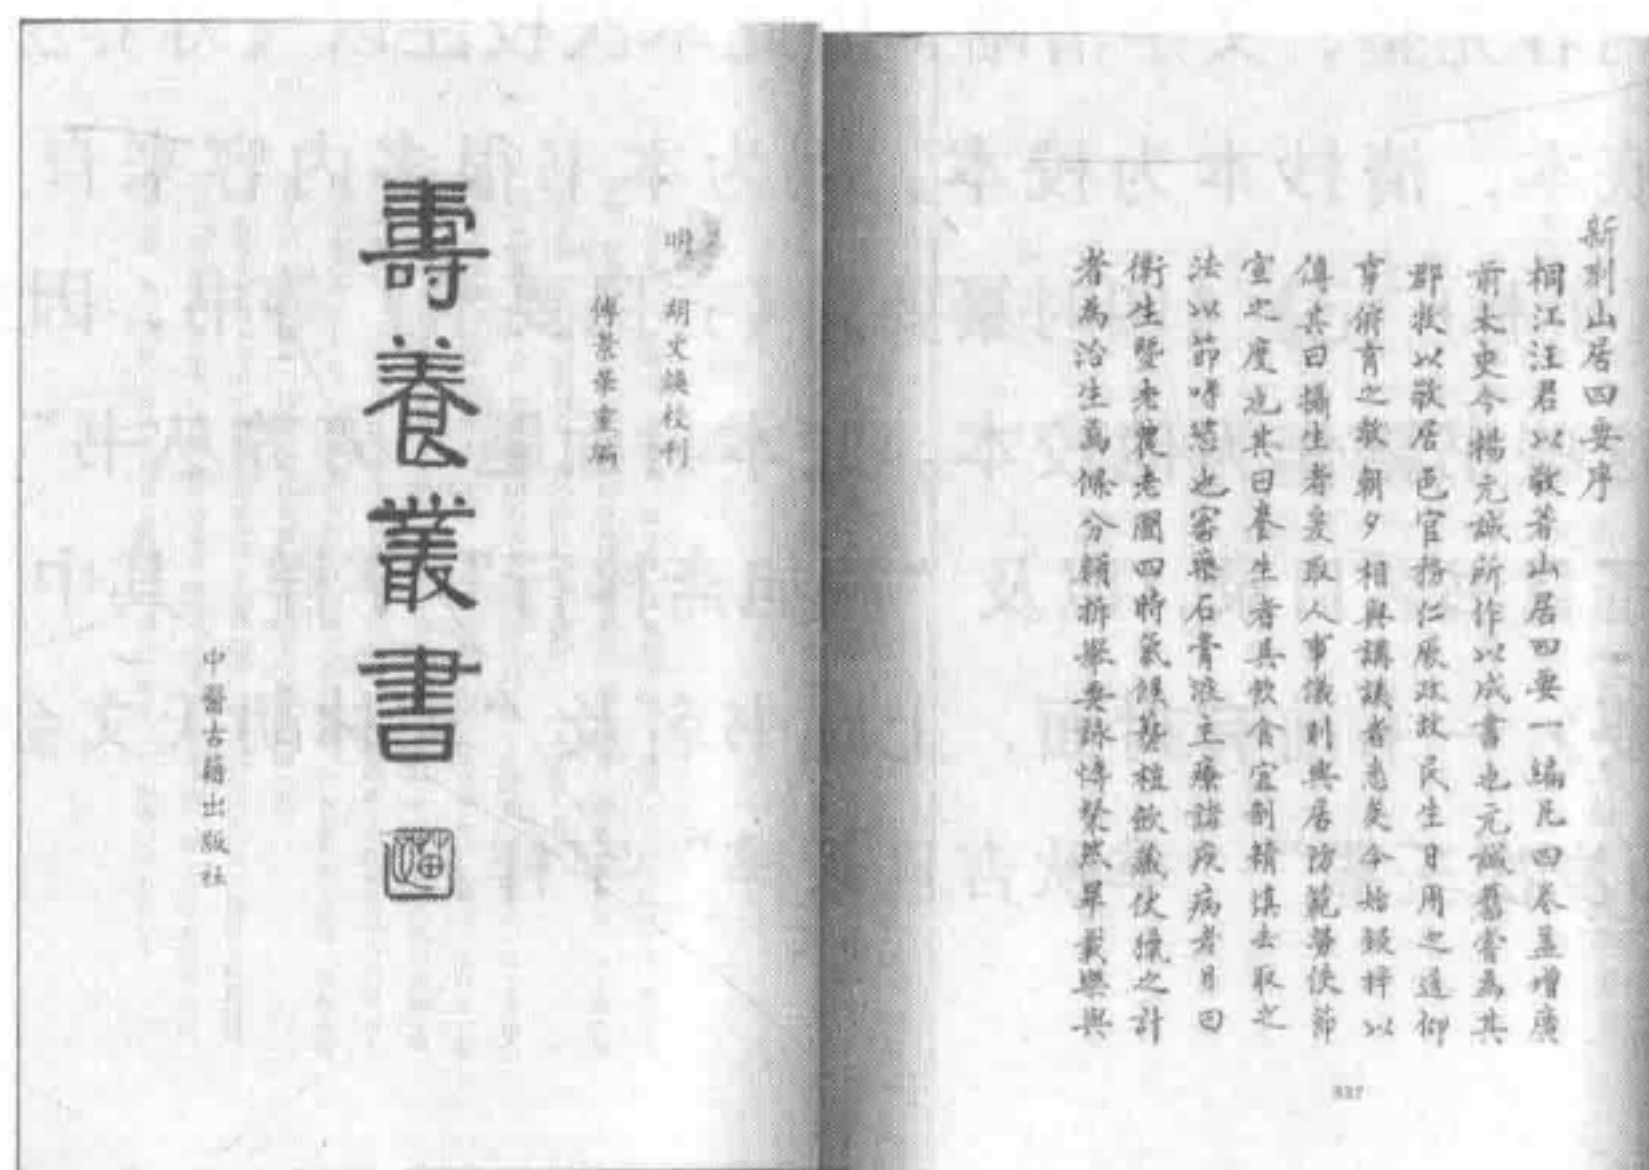 明 胡文焕校刊
傅景華重編
壽養叢書
中醫古籍出版社
新刻山居四要序
桐江汪君以敬著山居四要一編凡四卷蓋增廣
前太史令楊元誠所作以成書也元誠舊嘗為其
郡教以敬居邑官務仁厥政故民生日用之道仰
事俯育之教朝夕相與講議者悉矣今始鋟梓以
傳其曰攝生者爰取人事儀則與居防範勞佚節
宣之度也其曰養生者具飲食宜制精慎去取之
法以節嗜慾也審藥石膏液主療諸疾病者曰
衛生暨老農老圃四時氣候藝植歛藏伏臘之計
者為治生焉條分類拆舉要詠博粲然畢載與與